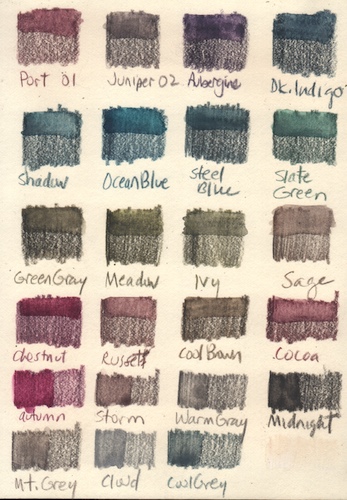 Port 01 Juniper 02 Aubergine Dk. Indigo
Shadow Ocean Blue Steel Blue Slate Green
Green Gray Meadow Ivy Sage
Chestnut Russett Cool Brown Cocoa
autumn Storm Warm Gray Midnight
Mt. Grey Cloud Cool Grey